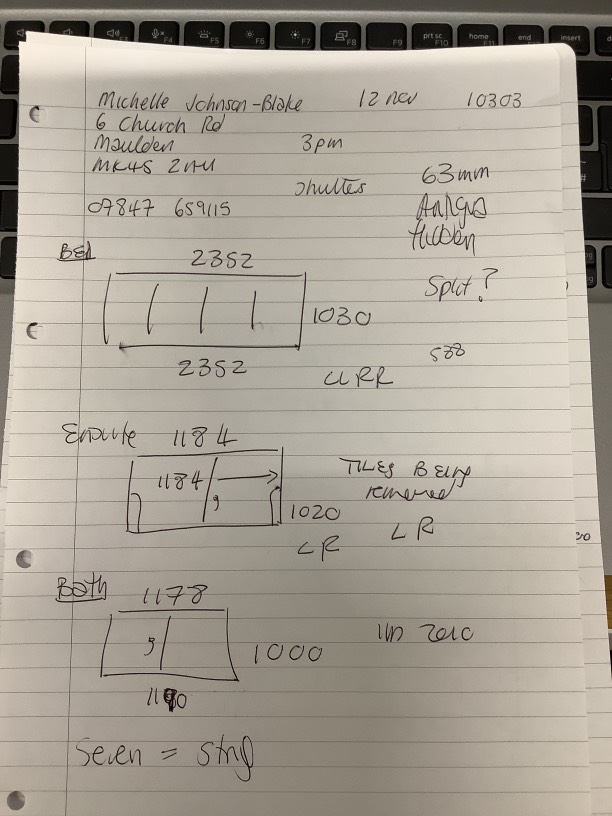 Michelle Johnson-Blake 12 nov 10303
6 Church Rd
Maulden 3pm
MK45 2AU
63mm
07847 659115
Hidden
Bed
2352
Split?
1030
2352
588
LLRR
Ensuite 1184
1184
TILES BEING
removed
1020
LR
LR
Bath 1178
1000
1180
Seven =
prt sc
F10
home
end
insert
F4
F5
F6
F7
F8
F9